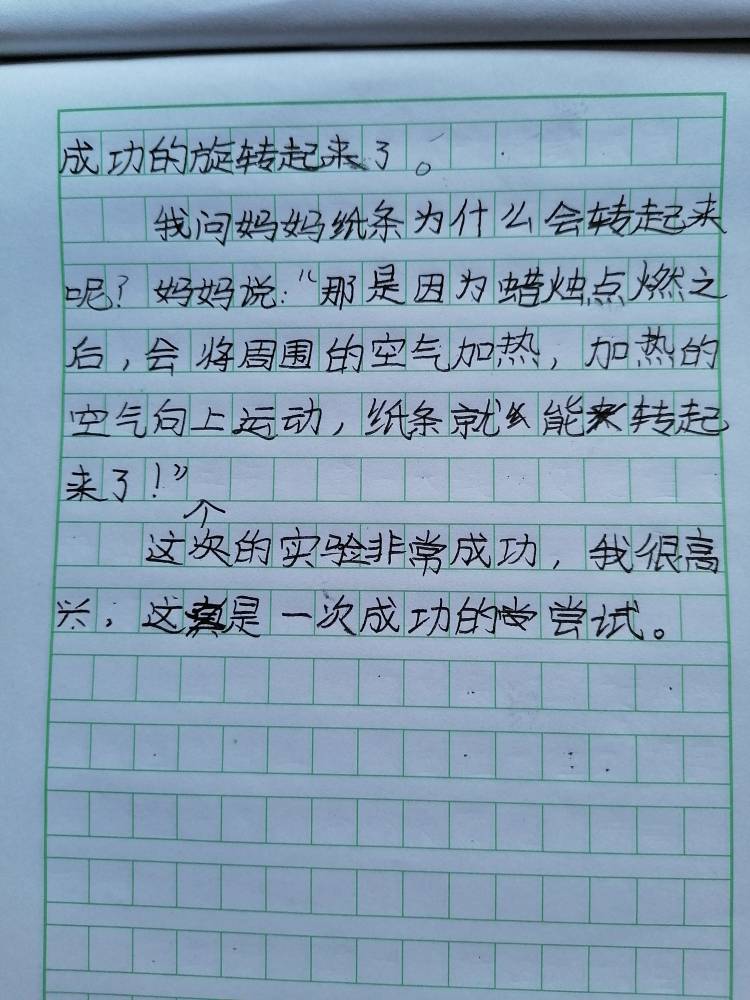 成功的旋转起来了。
我问妈妈纸条为什么会转起来
呢？妈妈说：“那是因为蜡烛点燃之
后，会将周围的空气加热，加热的
空气向上运动，纸条就能转起
来了！”
个
这次的实验非常成功，我很高
兴，这是一次成功的尝试。